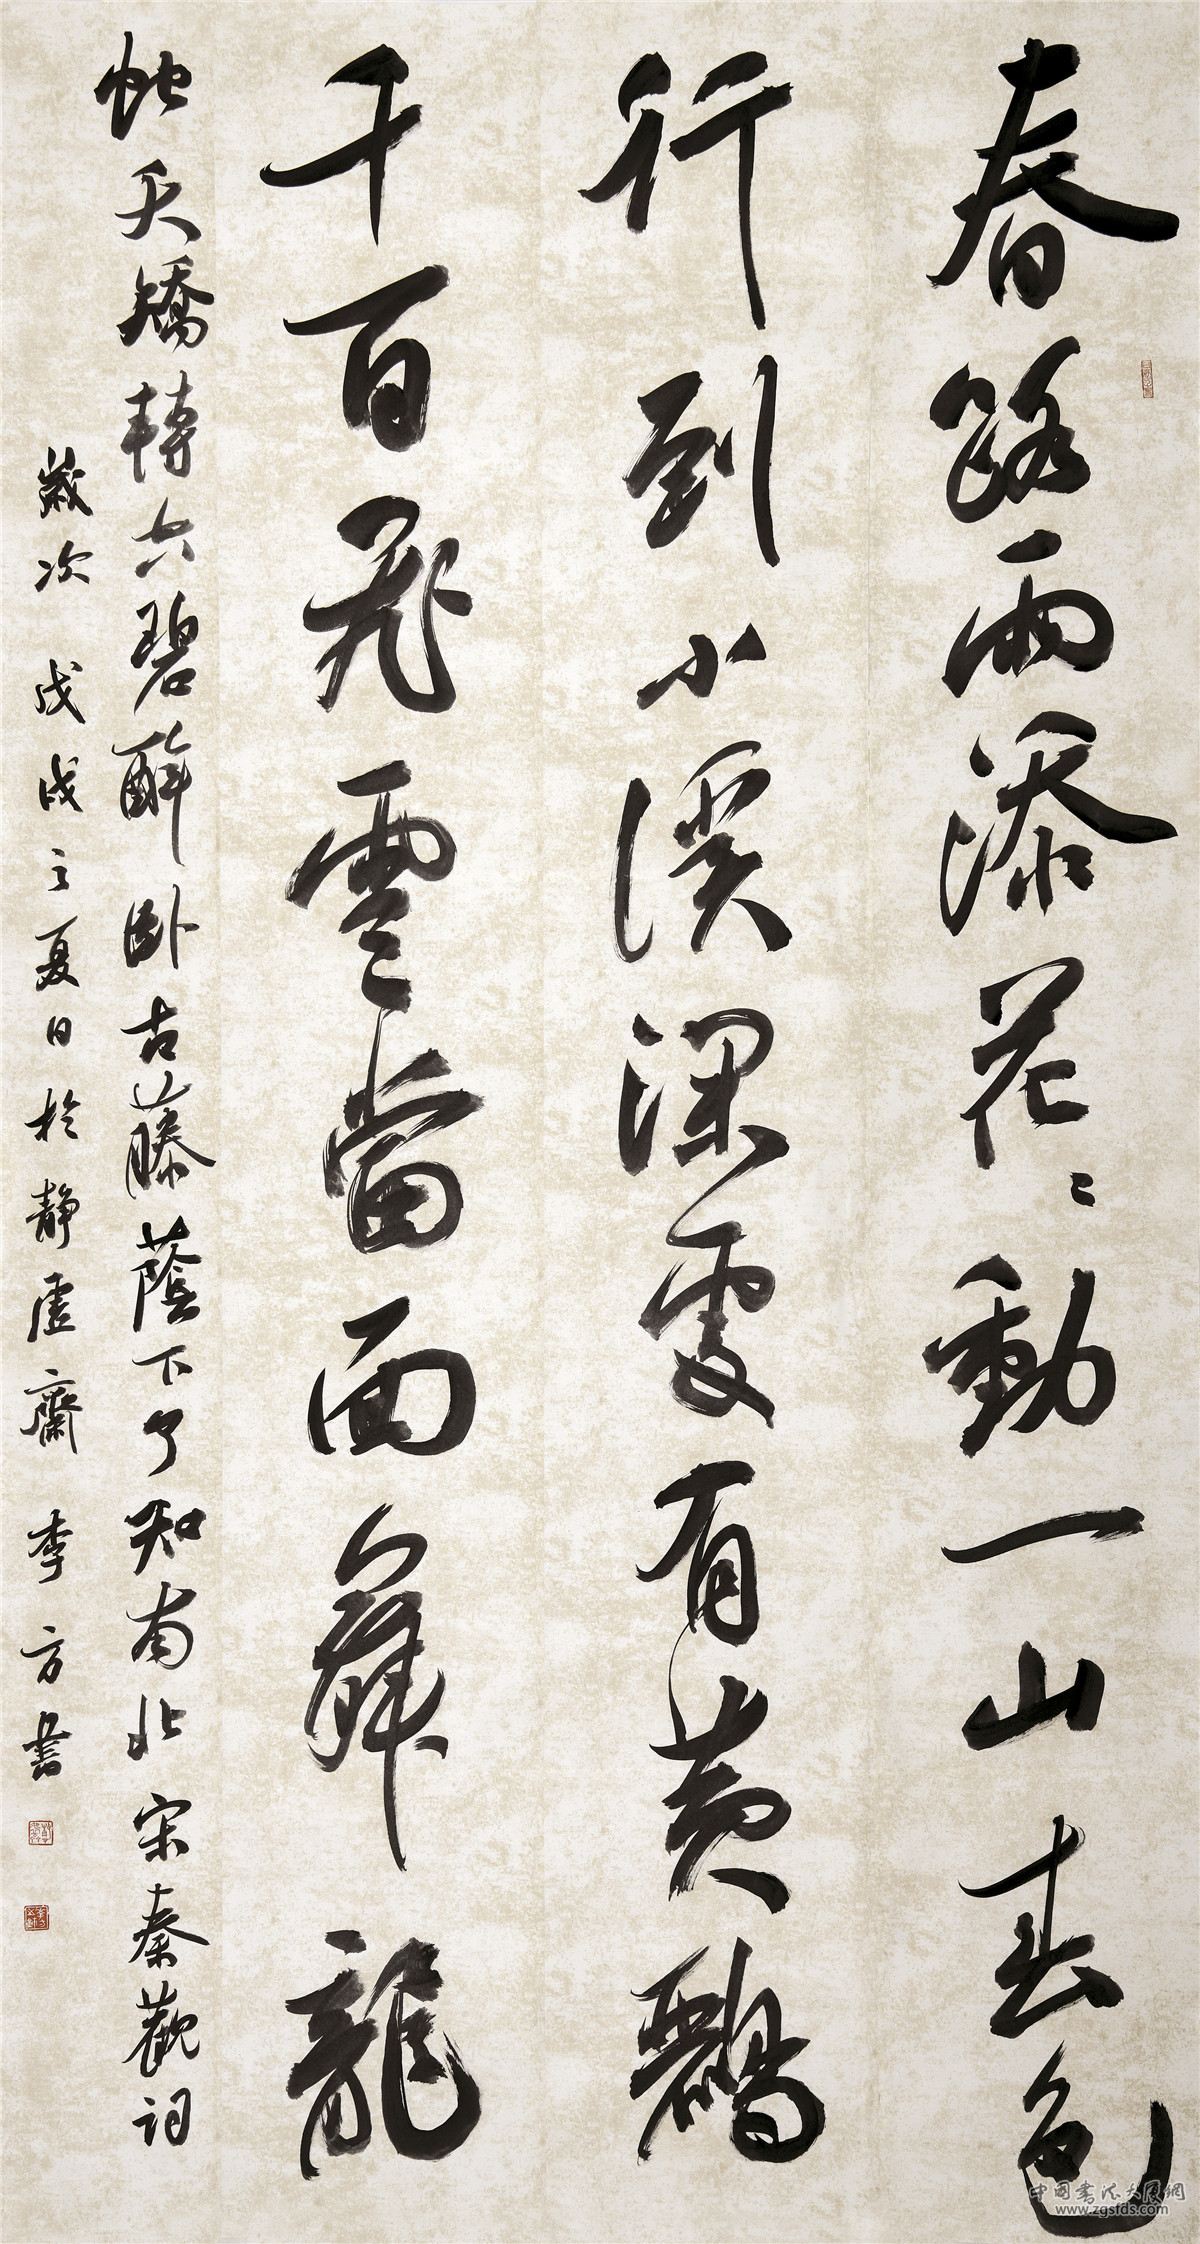 春路雨添花〻動一山春色
行到小溪深處有黃鸝
千百飛雲當面舞龍
蛇夭矯轉空碧醉卧古藤蔭下了知南北 宋秦觀詞
歲次戊戌之夏日於靜虛齋 李方書
中国書法大展網
www.zgsfds.com